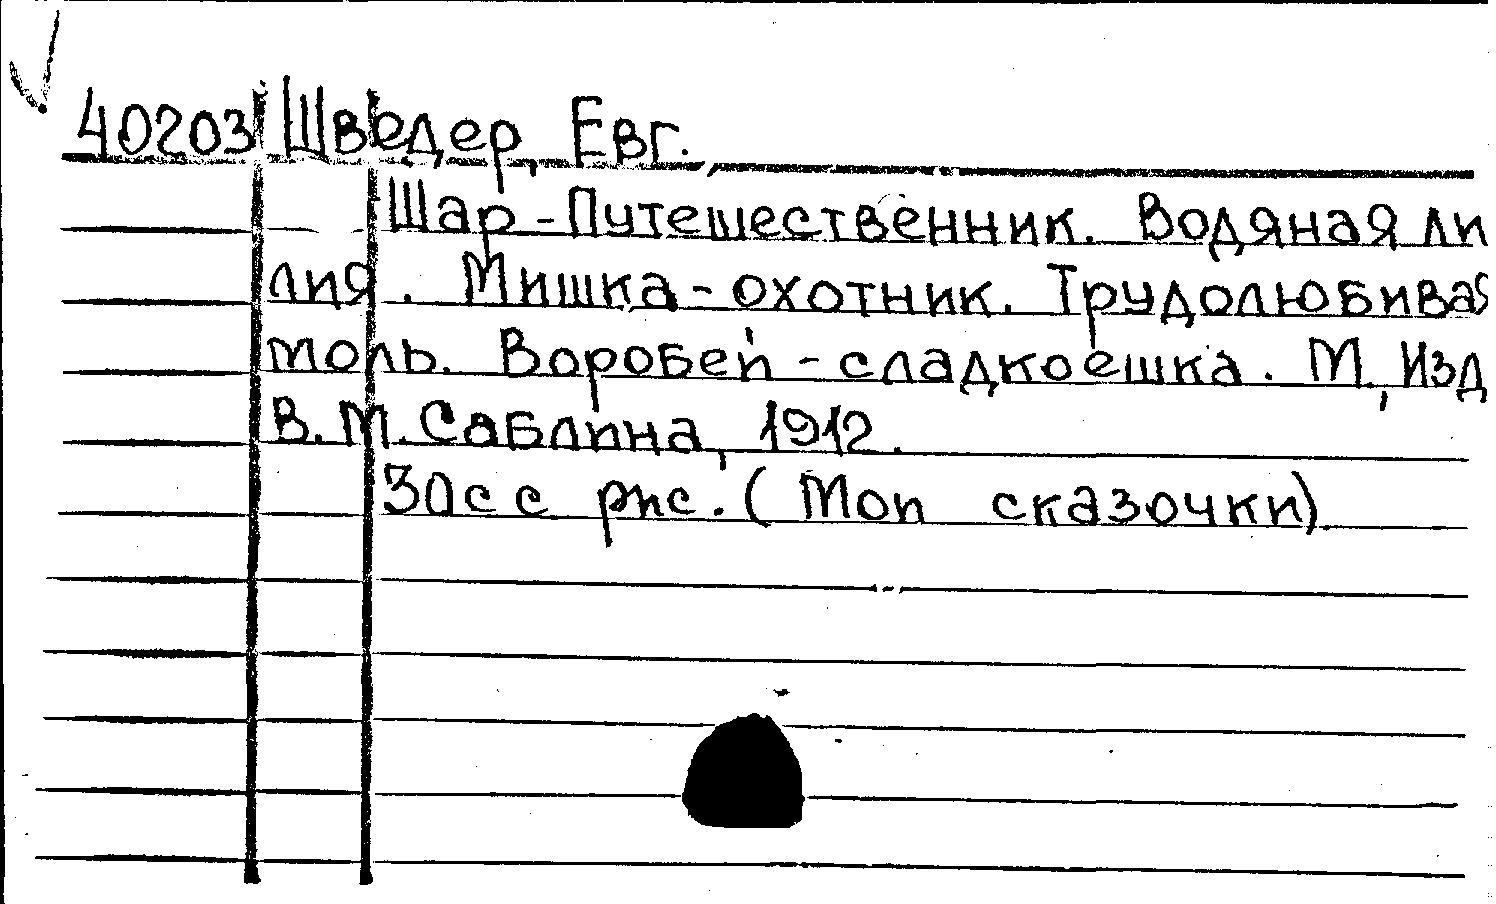 40203 Шведер, Евг.
Шар-Путешественник. Водяная ли
лия. Мишка-охотник. Трудолюбивая
моль. Воробей-сладкоешка. М., Изд
В.М. Саблина, 1912.
30с с рис. (Мои сказочки)